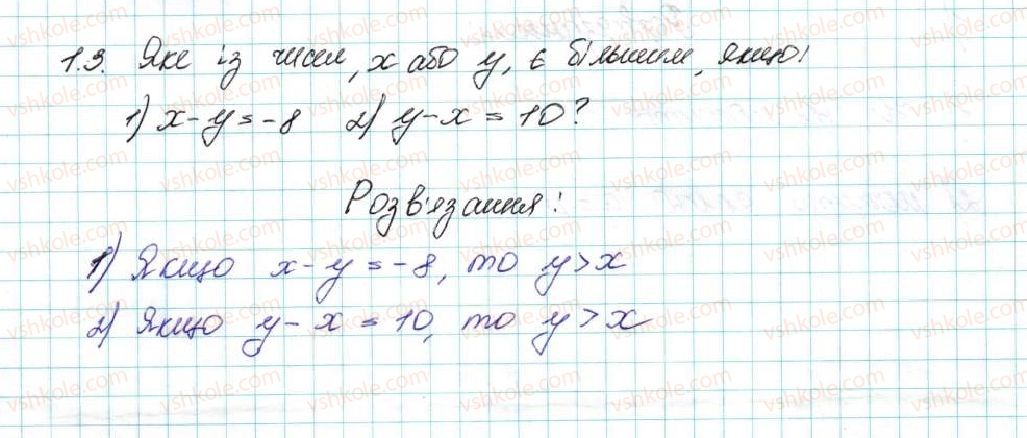 1.3. Яке із чисел, x або y, є більшим, якщо:
1) x-y=-8 2) y-x=10?
Розв'язання:
1) Якщо x-y=-8, то y>x
2) Якщо y-x=10, то y>x